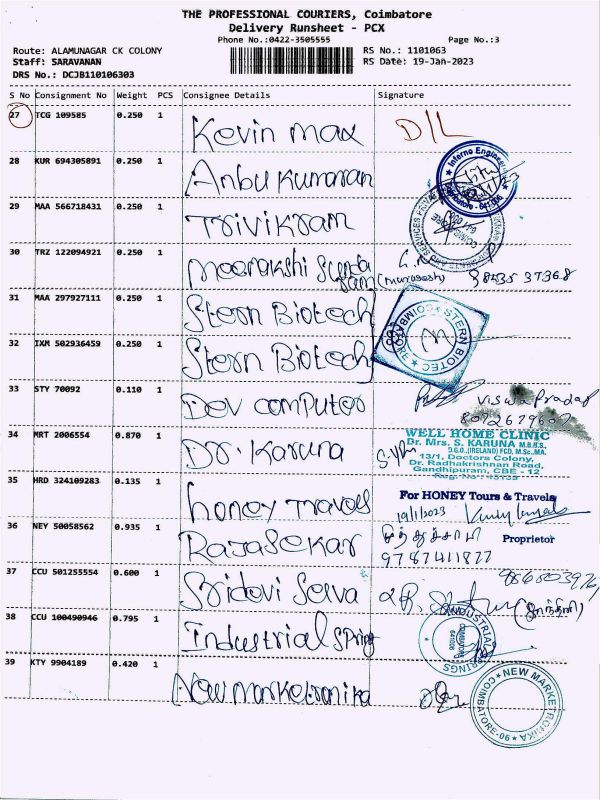 THE PROFESSIONAL COURIERS, Coimbatore
Delivery Runsheet - PCX
Phone No.:0422-3505555 Page No.:3
Route: ALAMUNAGAR CK COLONY RS No.: 1101063
Staff: SARAVANAN RS Date: 19-Jan-2023
DRS No.: DCJB110106303
S No Consignment No Weight PCS Consignee Details Signature
27 TCG 109585 0.250 1 Kevin max D/L
28 KUR 694305891 0.250 1 Anbu Kumaran
Inferno Engineer
29 MAA 566718431 0.250 1 Trivikram
30 TRZ 122094921 0.250 1 Meenakshi Sunda
ram (Murugesh) 98435 37368
31 MAA 297927111 0.250 1 Stern Biotech
STERN BIOTEC
COIMBATORE
32 IXM 502936459 0.250 1 Stern Biotech
33 STY 70092 0.110 1 Dev computer Viswa Pradap
8072679607
34 MRT 2006554 0.870 1 Dr. Karuna
WELL HOME CLINIC
Dr. Mrs. S. KARUNA M.B.B.S.,
D.G.O.,(IRELAND) FCD, M.Sc.,MA,
13/1, Doctors Colony,
Dr. Radhakrishnan Road,
Gandhipuram, CBE - 12
35 HRD 324109283 0.135 1 honey Travels
For HONEY Tours & Travels
19/1/2023
Proprietor
36 NEY 50058562 0.935 1 Rajasekar
9787411877
37 CCU 501255554 0.600 1 Sridevi Seva
38 CCU 100490946 0.795 1 Industrial Spring
39 KTY 9904189 0.420 1 New marketronika
NEW MARKETRONIKA
COIMBATORE-06